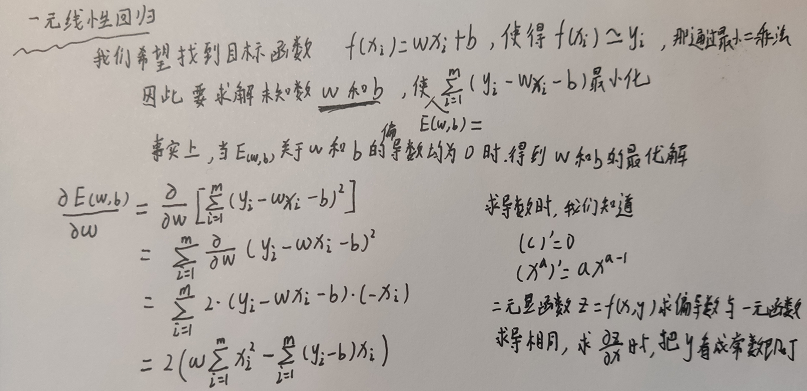 一元线性回归
我们希望找到目标函数 f(xᵢ)=wxᵢ+b，使得 f(xᵢ)≃yᵢ，那通过最小二乘法
因此要求解未知数 w和b，使 ∑ᵢ₌₁ᵐ (yᵢ-wxᵢ-b)最小化
E(w,b)=
事实上，当E(w,b)关于w和b的偏导数均为0时，得到w和b的最优解
∂E(w,b)/∂w = ∂/∂w [∑ᵢ₌₁ᵐ (yᵢ-wxᵢ-b)²]
= ∑ᵢ₌₁ᵐ ∂/∂w (yᵢ-wxᵢ-b)²
= ∑ᵢ₌₁ᵐ 2·(yᵢ-wxᵢ-b)·(-xᵢ)
= 2(w∑ᵢ₌₁ᵐ xᵢ²-∑ᵢ₌₁ᵐ (yᵢ-b)xᵢ)
求导数时，我们知道
(c)′=0
(xᵃ)′=axᵃ⁻¹
二元显函数z=f(x,y)求偏导数与一元函数
求导相同，求 ∂z/∂x 时，把y看成常数即可